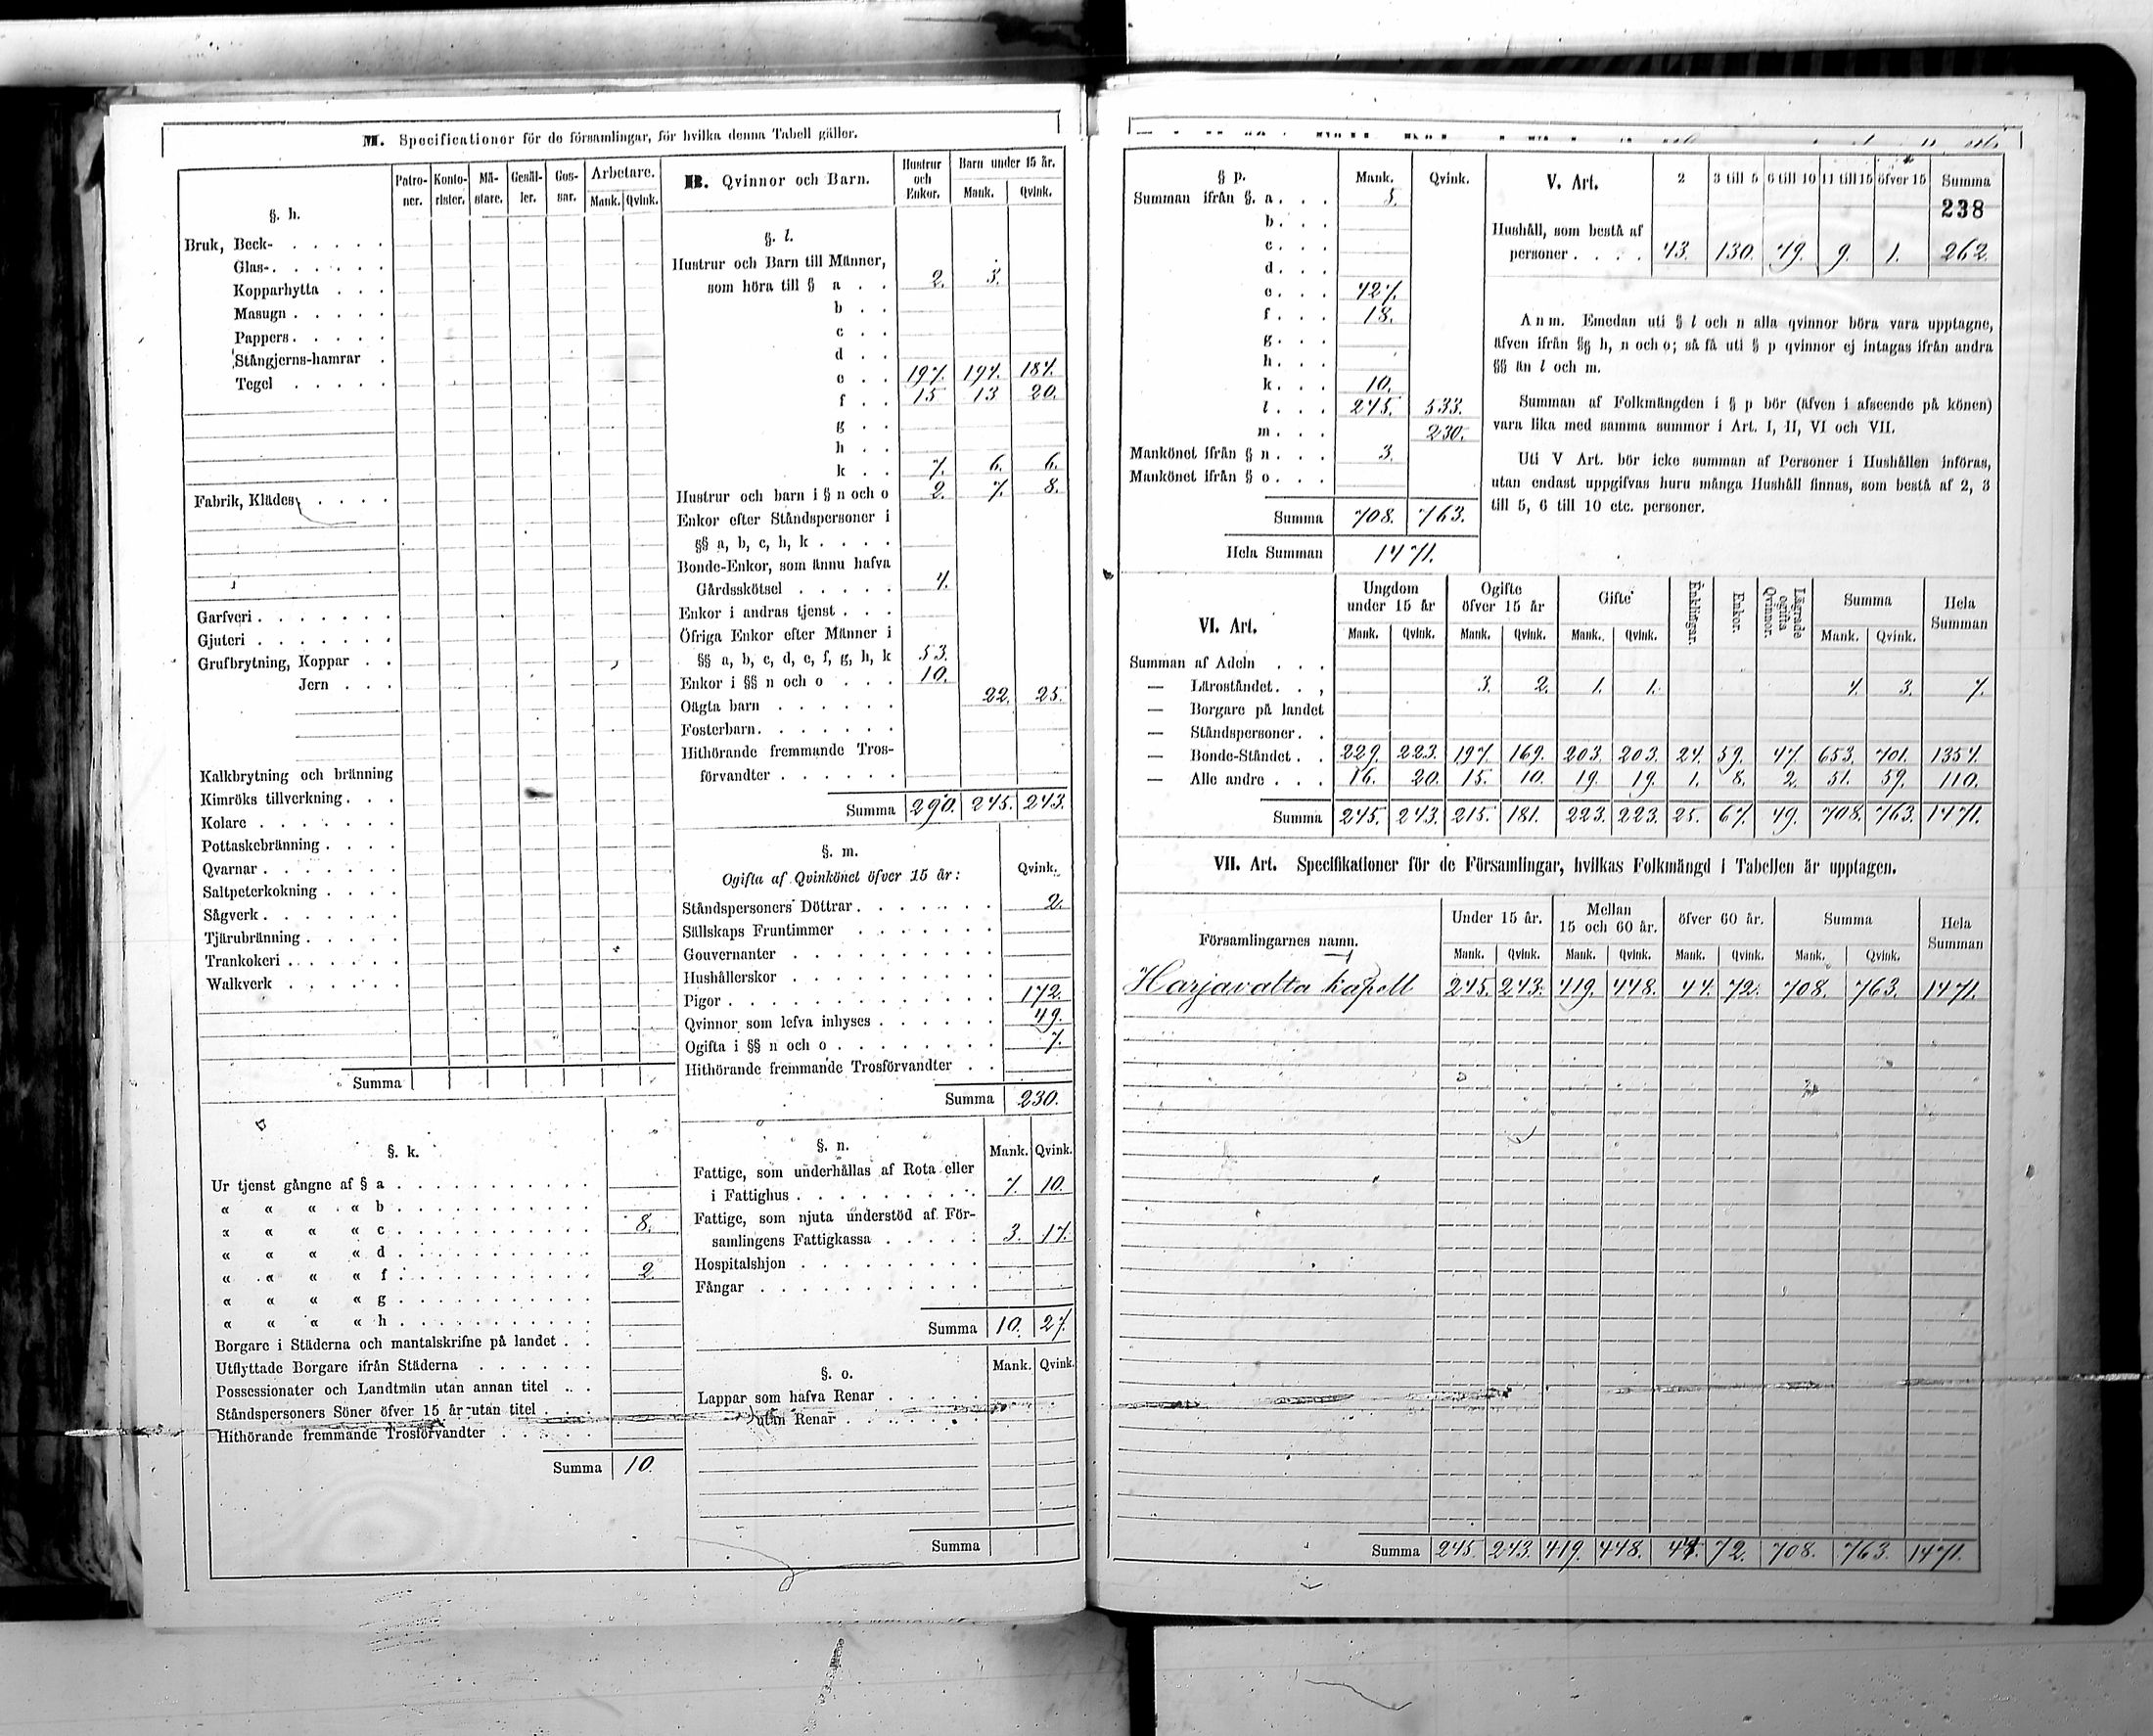 M. Specificationer för de församlingar, för hvilka denna Tabell gäller.
§. h.
Patro-ner. Konto-rister. Mä-stare. Gesäl-ler. Gos-sar. Arbetare. Mank. Qvink.
Bruk, Beck-
Glas-
Kopparhytta
Masugn
Pappers
Stångjerns-hamrar
Tegel
Fabrik, Klädes
Garfveri
Gjuteri
Grufbrytning, Koppar
Jern
Kalkbrytning och bränning
Kimröks tillverkning
Kolare
Pottaskebränning
Qvarnar
Saltpeterkokning
Sågverk
Tjärubränning
Trankokeri
Walkverk
Summa
§. k.
Ur tjenst gångne af § a
« « « « b
« « « « c 8.
« « « « d
« « « « f 2
« « « « g
« « « « h
Borgare i Städerna och mantalskrifne på landet
Utflyttade Borgare ifrån Städerna
Possessionater och Landtmän utan annan titel
Ståndspersoners Söner öfver 15 år utan titel
Hithörande fremmande Trosförvandter
Summa 10.
B. Qvinnor och Barn.
Hustrur och Enkor. Barn under 15 år. Mank. Qvink.
§. l.
Hustrur och Barn till Männer,
som höra till § a 2. 3.
b
c
d
e 197. 197. 187.
f 15 13 20.
g
h
k 7. 6. 6.
Hustrur och barn i § n och o 2. 7. 8.
Enkor efter Ståndspersoner i
§§ a, b, c, h, k
Bonde-Enkor, som ännu hafva
Gårdsskötsel 4.
Enkor i andras tjenst
Öfriga Enkor efter Männer i
§§ a, b, c, d, e, f, g, h, k 53.
Enkor i §§ n och o 10.
Oägta barn 22. 25.
Fosterbarn
Hithörande fremmande Tros-
förvandter
Summa 290. 245. 243.
§. m.
Ogifta af Qvinkönet öfver 15 år: Qvink.
Ståndspersoners Döttrar 2.
Sällskaps Fruntimmer
Gouvernanter
Hushållerskor
Pigor 172.
Qvinnor som lefva inhyses 49.
Ogifta i §§ n och o 7.
Hithörande fremmande Trosförvandter
Summa 230.
§. n. Mank. Qvink.
Fattige, som underhållas af Rota eller
i Fattighus 7. 10.
Fattige, som njuta understöd af För-
samlingens Fattigkassa 3. 17.
Hospitalshjon
Fångar
Summa 10. 27.
§. o. Mank. Qvink.
Lappar som hafva Renar
utan Renar
Summa
§ p. Mank. Qvink.
Summan ifrån §. a. 5.
b.
c.
d.
e. 427.
f. 18.
g.
h.
k. 10.
l. 245. 533.
m. 230.
Mankönet ifrån § n. 3.
Mankönet ifrån § o.
Summa 708. 763.
Hela Summan 1471.
V. Art. 2 3 till 5 6 till 10 11 till 15 öfver 15 Summa
238
Hushåll, som bestå af
personer 43. 130. 79. 9. 1. 262.
Anm. Emedan uti § l och n alla qvinnor böra vara upptagne,
äfven ifrån §§ h, n och o; så få uti § p qvinnor ej intagas ifrån andra
§§ än l och m.
Summan af Folkmängden i § p bör (äfven i afseende på könen)
vara lika med samma summor i Art. I, II, VI och VII.
Uti V Art. bör icke summan af Personer i Hushållen införas,
utan endast uppgifvas huru många Hushåll finnas, som bestå af 2, 3
till 5, 6 till 10 etc. personer.
VI. Art.
Ungdom under 15 år Ogifte öfver 15 år Gifte Enklingar. Enkor. Lägrade ogifta Qvinnor. Summa Hela Summan
Mank. Qvink. Mank. Qvink. Mank. Qvink. Mank. Qvink.
Summan af Adeln
— Läroståndet 3. 2. 1. 1. 4. 3. 7.
— Borgare på landet
— Ståndspersoner
— Bonde-Ståndet 229. 223. 197. 169. 203. 203. 24. 59. 47. 653. 701. 1354.
— Alle andre 16. 20. 15. 10. 19. 19. 1. 8. 2. 51. 59. 110.
Summa 245. 243. 215. 181. 223. 223. 25. 67. 49. 708. 763. 1471.
VII. Art. Specifikationer för de Församlingar, hvilkas Folkmängd i Tabellen är upptagen.
Församlingarnes namn. Under 15 år. Mellan 15 och 60 år. öfver 60 år. Summa Hela Summan
Mank. Qvink. Mank. Qvink. Mank. Qvink. Mank. Qvink.
Harjavalta kapell 245. 243. 419. 448. 44. 72. 708. 763. 1471.
Summa 245. 243. 419. 448. 44. 72. 708. 763. 1471.